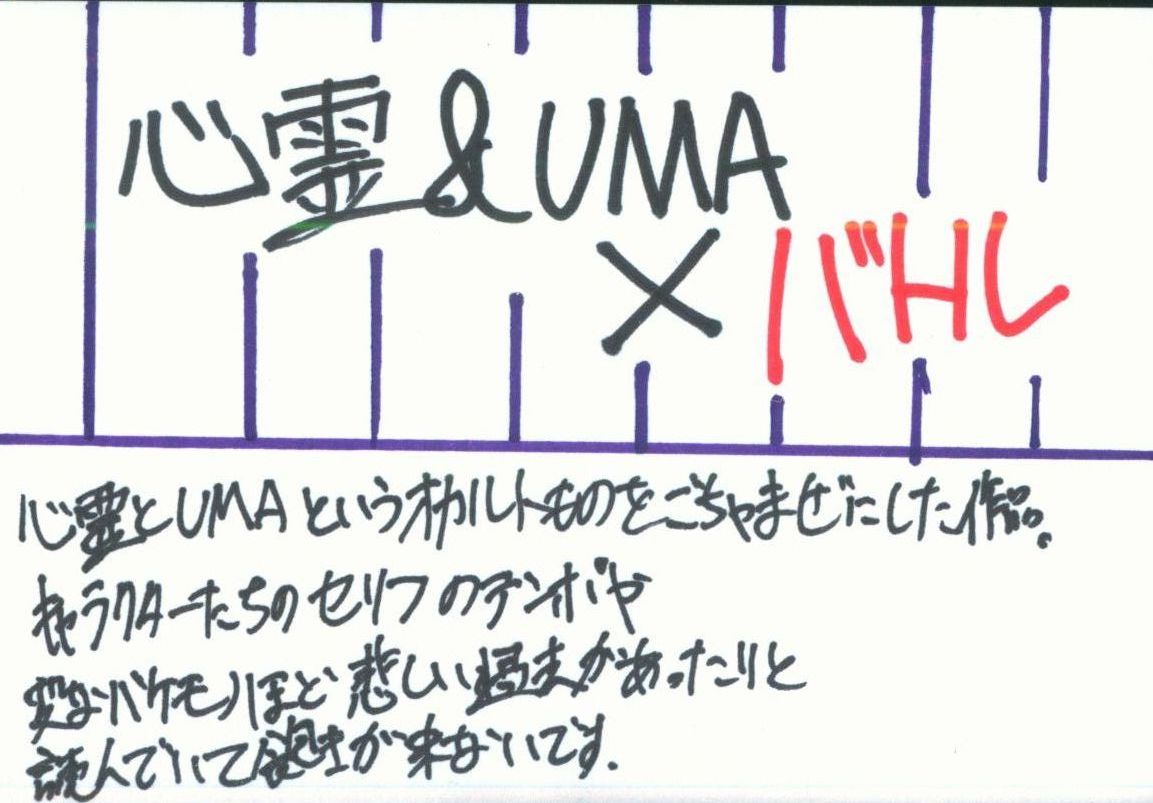 心霊&UMA
×バトル
心霊とUMAというオカルトものをごちゃまぜにした作品。
キャラクターたちのセリフのテンポや
変なバケモノほど悲しい過去があったりと
読んでいて飽きが来ないです.